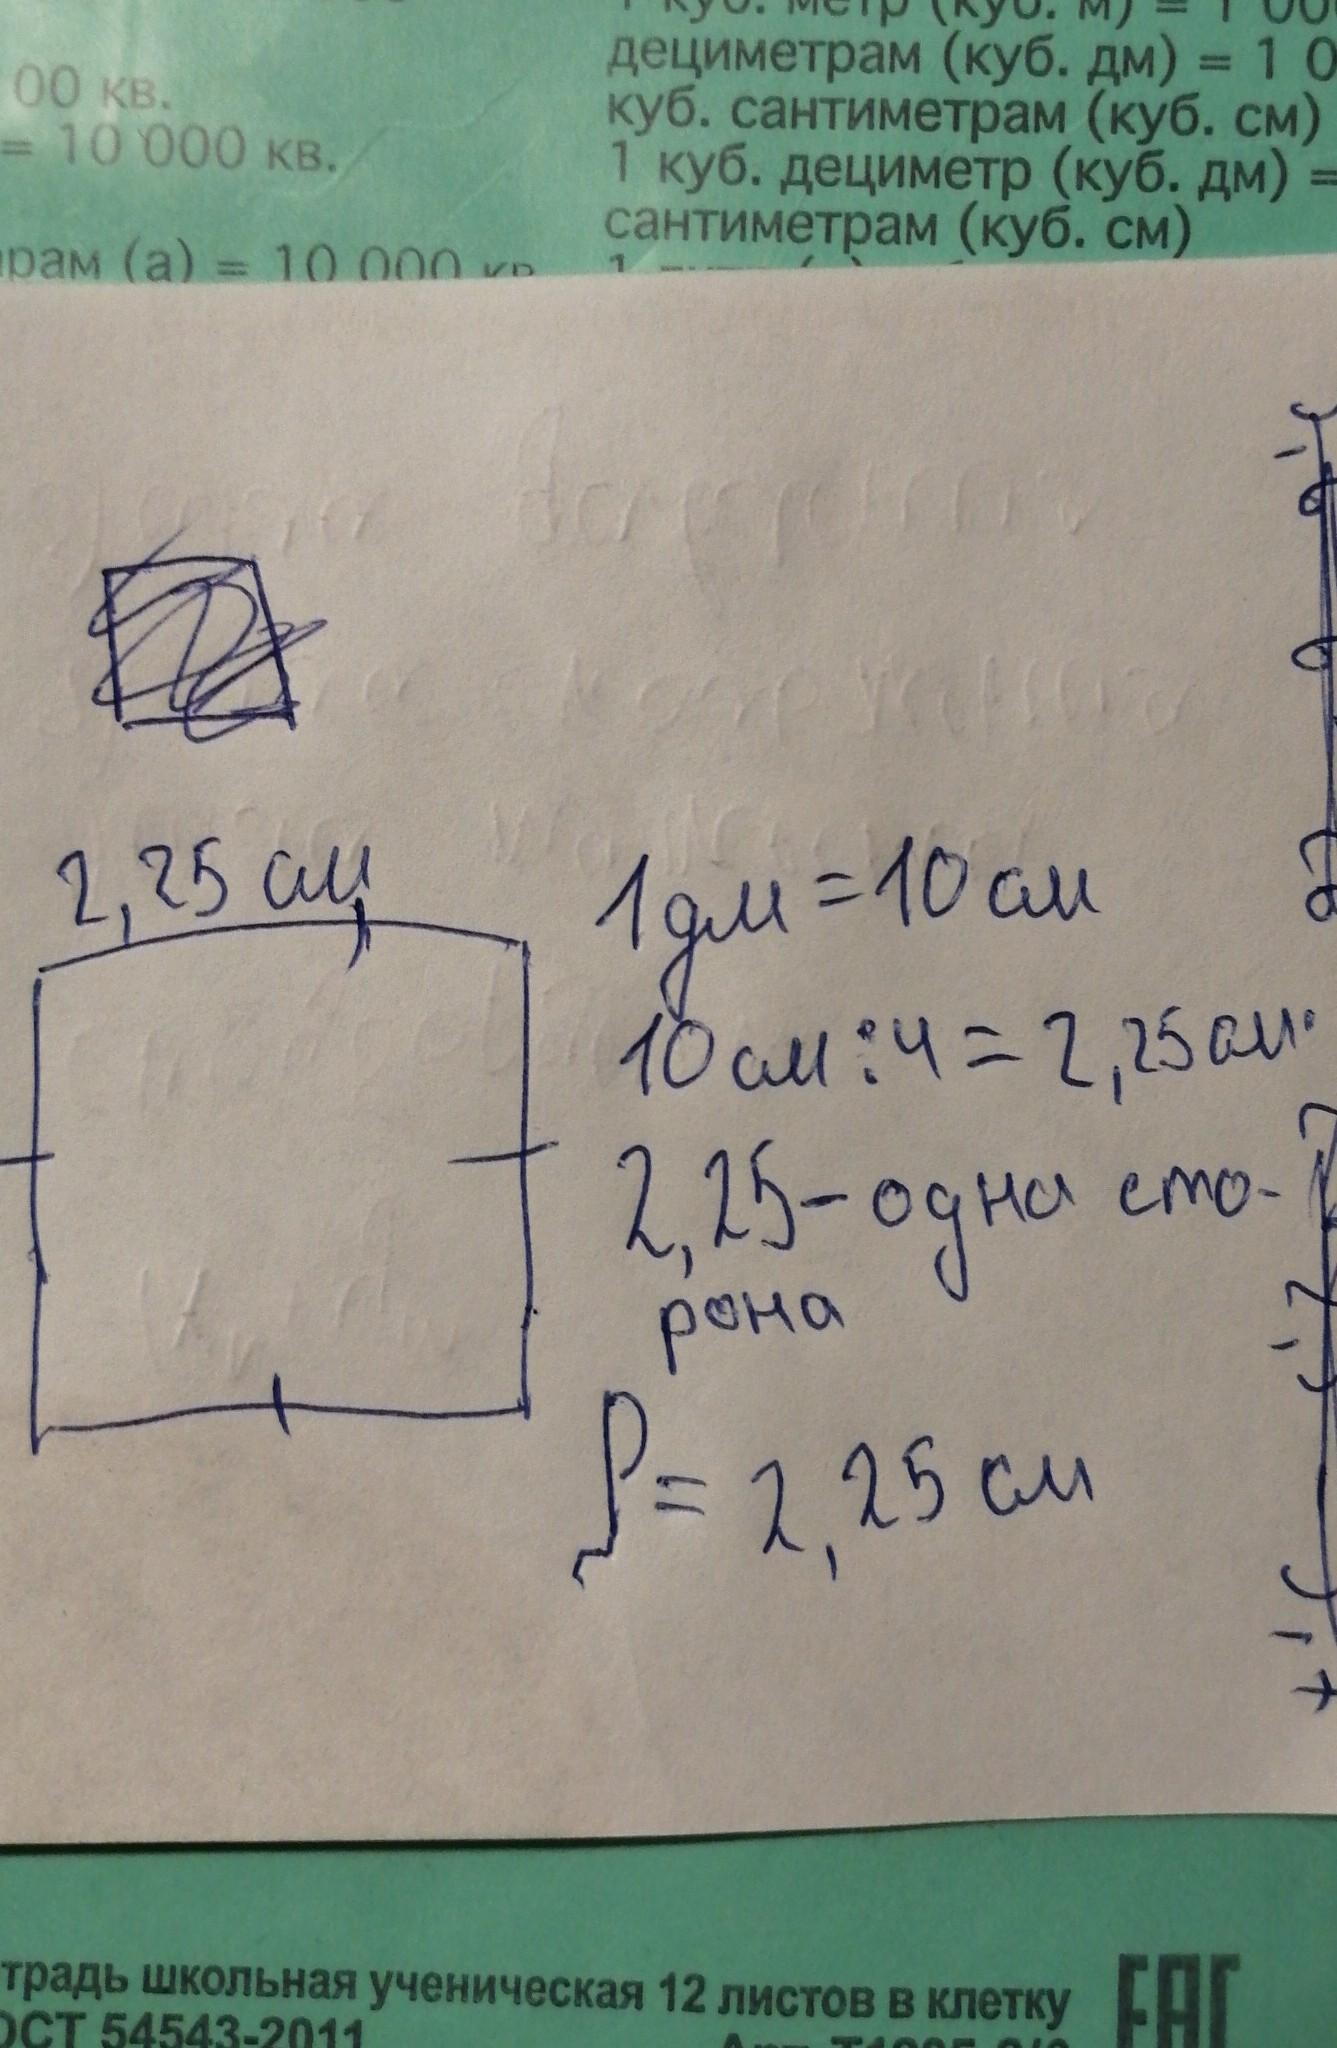 00 кв.
= 10 000 кв.
рам (а) = 10 000 кв
1 куб. метр (куб. м) = 1 00
дециметрам (куб. дм) = 1 0
куб. сантиметрам (куб. см)
1 куб. дециметр (куб. дм) =
сантиметрам (куб. см)
2,25 см
1 дм = 10 см
10 см : 4 = 2,25 см.
2,25 - одна сто-
рона
P = 2,25 см
традь школьная ученическая 12 листов в клетку
ОСТ 54543-2011
EAC